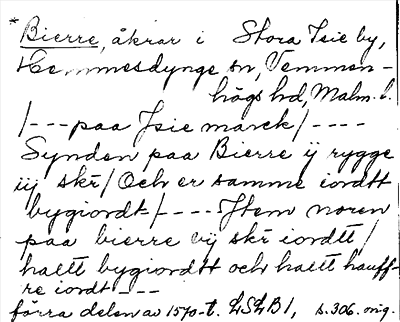 * Bierre, åkrar i Stora Isie by,
Hemmesdynge sn, Vemmen-
högs hd, Malm. l.
/---paa Isie marck/----
Synden paa Bierre ij rygge
iij skr/ Och er samme iordtt
bygiordt/---- Item noren
paa bierre vij skr iordtt/
haltt bygiordtt och haltt hauff-
re iordt---
förra delen av 1570-t. LSLB1, s.306. orig.